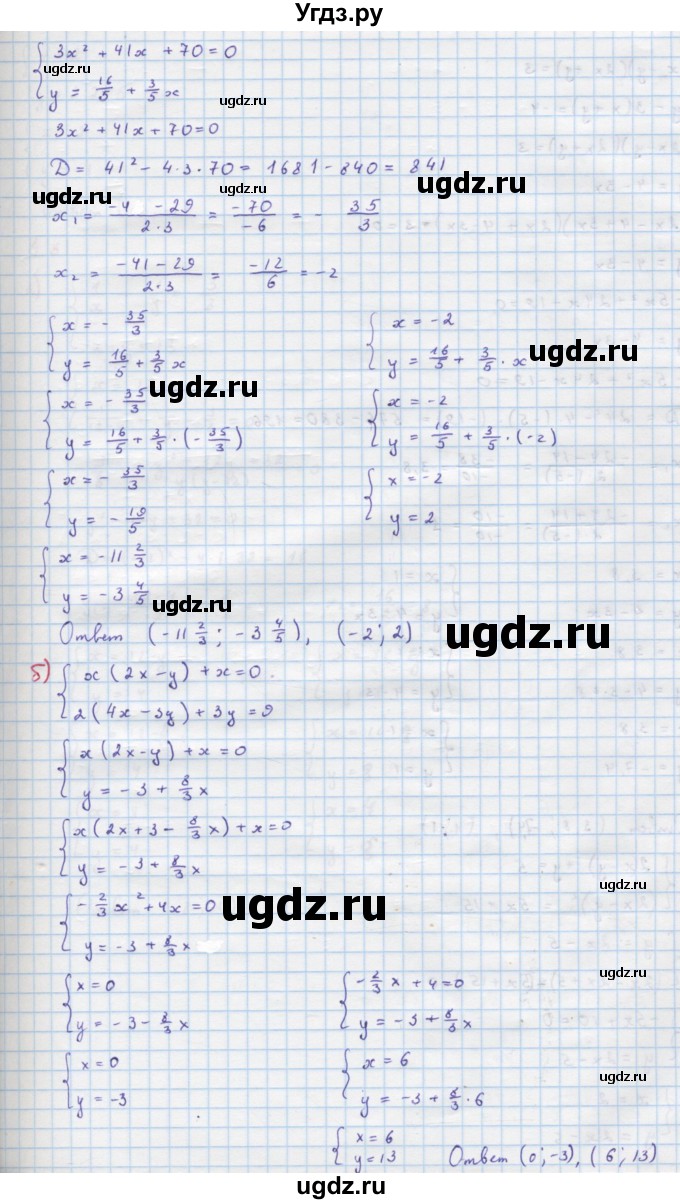 Угдз.ру
{ 3x² + 41x + 70 = 0
ugdz.ru
y = 16/5 + 3/5 x
ugdz.ru
3x² + 41x + 70 = 0
D = 41² - 4·3·70 = 1681 - 840 = 841
ugdz.ru ugdz.ru
x₁ = (-4 - 29)/(2·3) = -70/-6 = - 35/3
x₂ = (-41 - 29)/(2·3) = -12/6 = -2
{ x = - 35/3 { x = -2
y = 16/5 + 3/5 x y = 16/5 + 3/5 · x
ugdz.ru ugdz.ru
{ x = - 35/3 { x = -2
y = 16/5 + 3/5 · (- 35/3) y = 16/5 + 3/5 · (-2)
{ x = - 35/3 { x = -2
y = - 19/5 y = 2
{ x = -11 2/3
y = -3 4/5
ugdz.ru
Ответ (-11 2/3 ; -3 4/5), (-2; 2) ugdz.ru
б) { x(2x - y) + x = 0.
2(4x - 3y) + 3y = 9
{ x(2x - y) + x = 0
y = -3 + 8/3 x
{ x(2x + 3 - 8/3 x) + x = 0
y = -3 + 8/3 x
ugdz.ru
{ - 2/3 x² + 4x = 0 ugdz.ru
y = -3 + 8/3 x
{ x = 0 { - 2/3 x + 4 = 0
ugdz.ru
y = -3 - 8/3 x y = -3 + 8/3 x
{ x = 0 { x = 6
ugdz.ru
y = -3 y = -3 + 8/3 · 6
{ x = 6
y = 13 Ответ (0; -3), (6; 13)